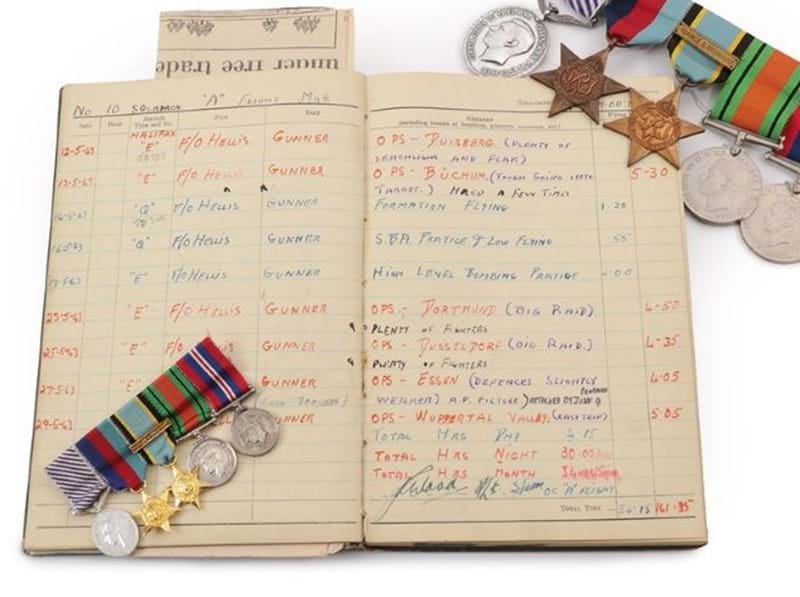 under free trade
No 10 SQUADRON "A" FLIGHT May
Date Hour Aircraft Type and No. Pilot Duty
REMARKS
HALIFAX
12-5-43 "E" F/O HELLIS GUNNER OPS - DUISBERG (PLENTY OF
SEARCHLIGHT AND FLAK)
13-5-43 "E" F/O HELLIS GUNNER OPS - BOCHUM. (TOUGH GOING OVER 5-30
TARGET.) HOLED A FEW TIMES
"Q" F/O HELLIS GUNNER FORMATION FLYING 1.20
16-5-43 "Q" F/O HELLIS GUNNER S.B.A. PRATICE & LOW FLYING 55
"E" F/O HELLIS GUNNER HIGH LEVEL BOMBING PRATICE 2.00
23-5-43 "E" F/O HELLIS GUNNER OPS - DORTMUND (BIG RAID) 4-50
PLENTY OF FIGHTERS
25-5-43 "E" F/O GUNNER OPS - DUSSELDORF (BIG RAID.) 4-35
PLENTY OF FIGHTERS
27-5-43 "E" GUNNER OPS - ESSEN (DEFENCES SLIGHTLY 4.05
WEAKER) A.P. PICTURE)
29-5-43 OPS - WUPPERTAL VALLEY. (EASY TRIP) 5.05
TOTAL HRS DAY 4.15
TOTAL HRS NIGHT 30.00
TOTAL HRS MONTH
OC "A" FLIGHT
TOTAL TIME 161-35